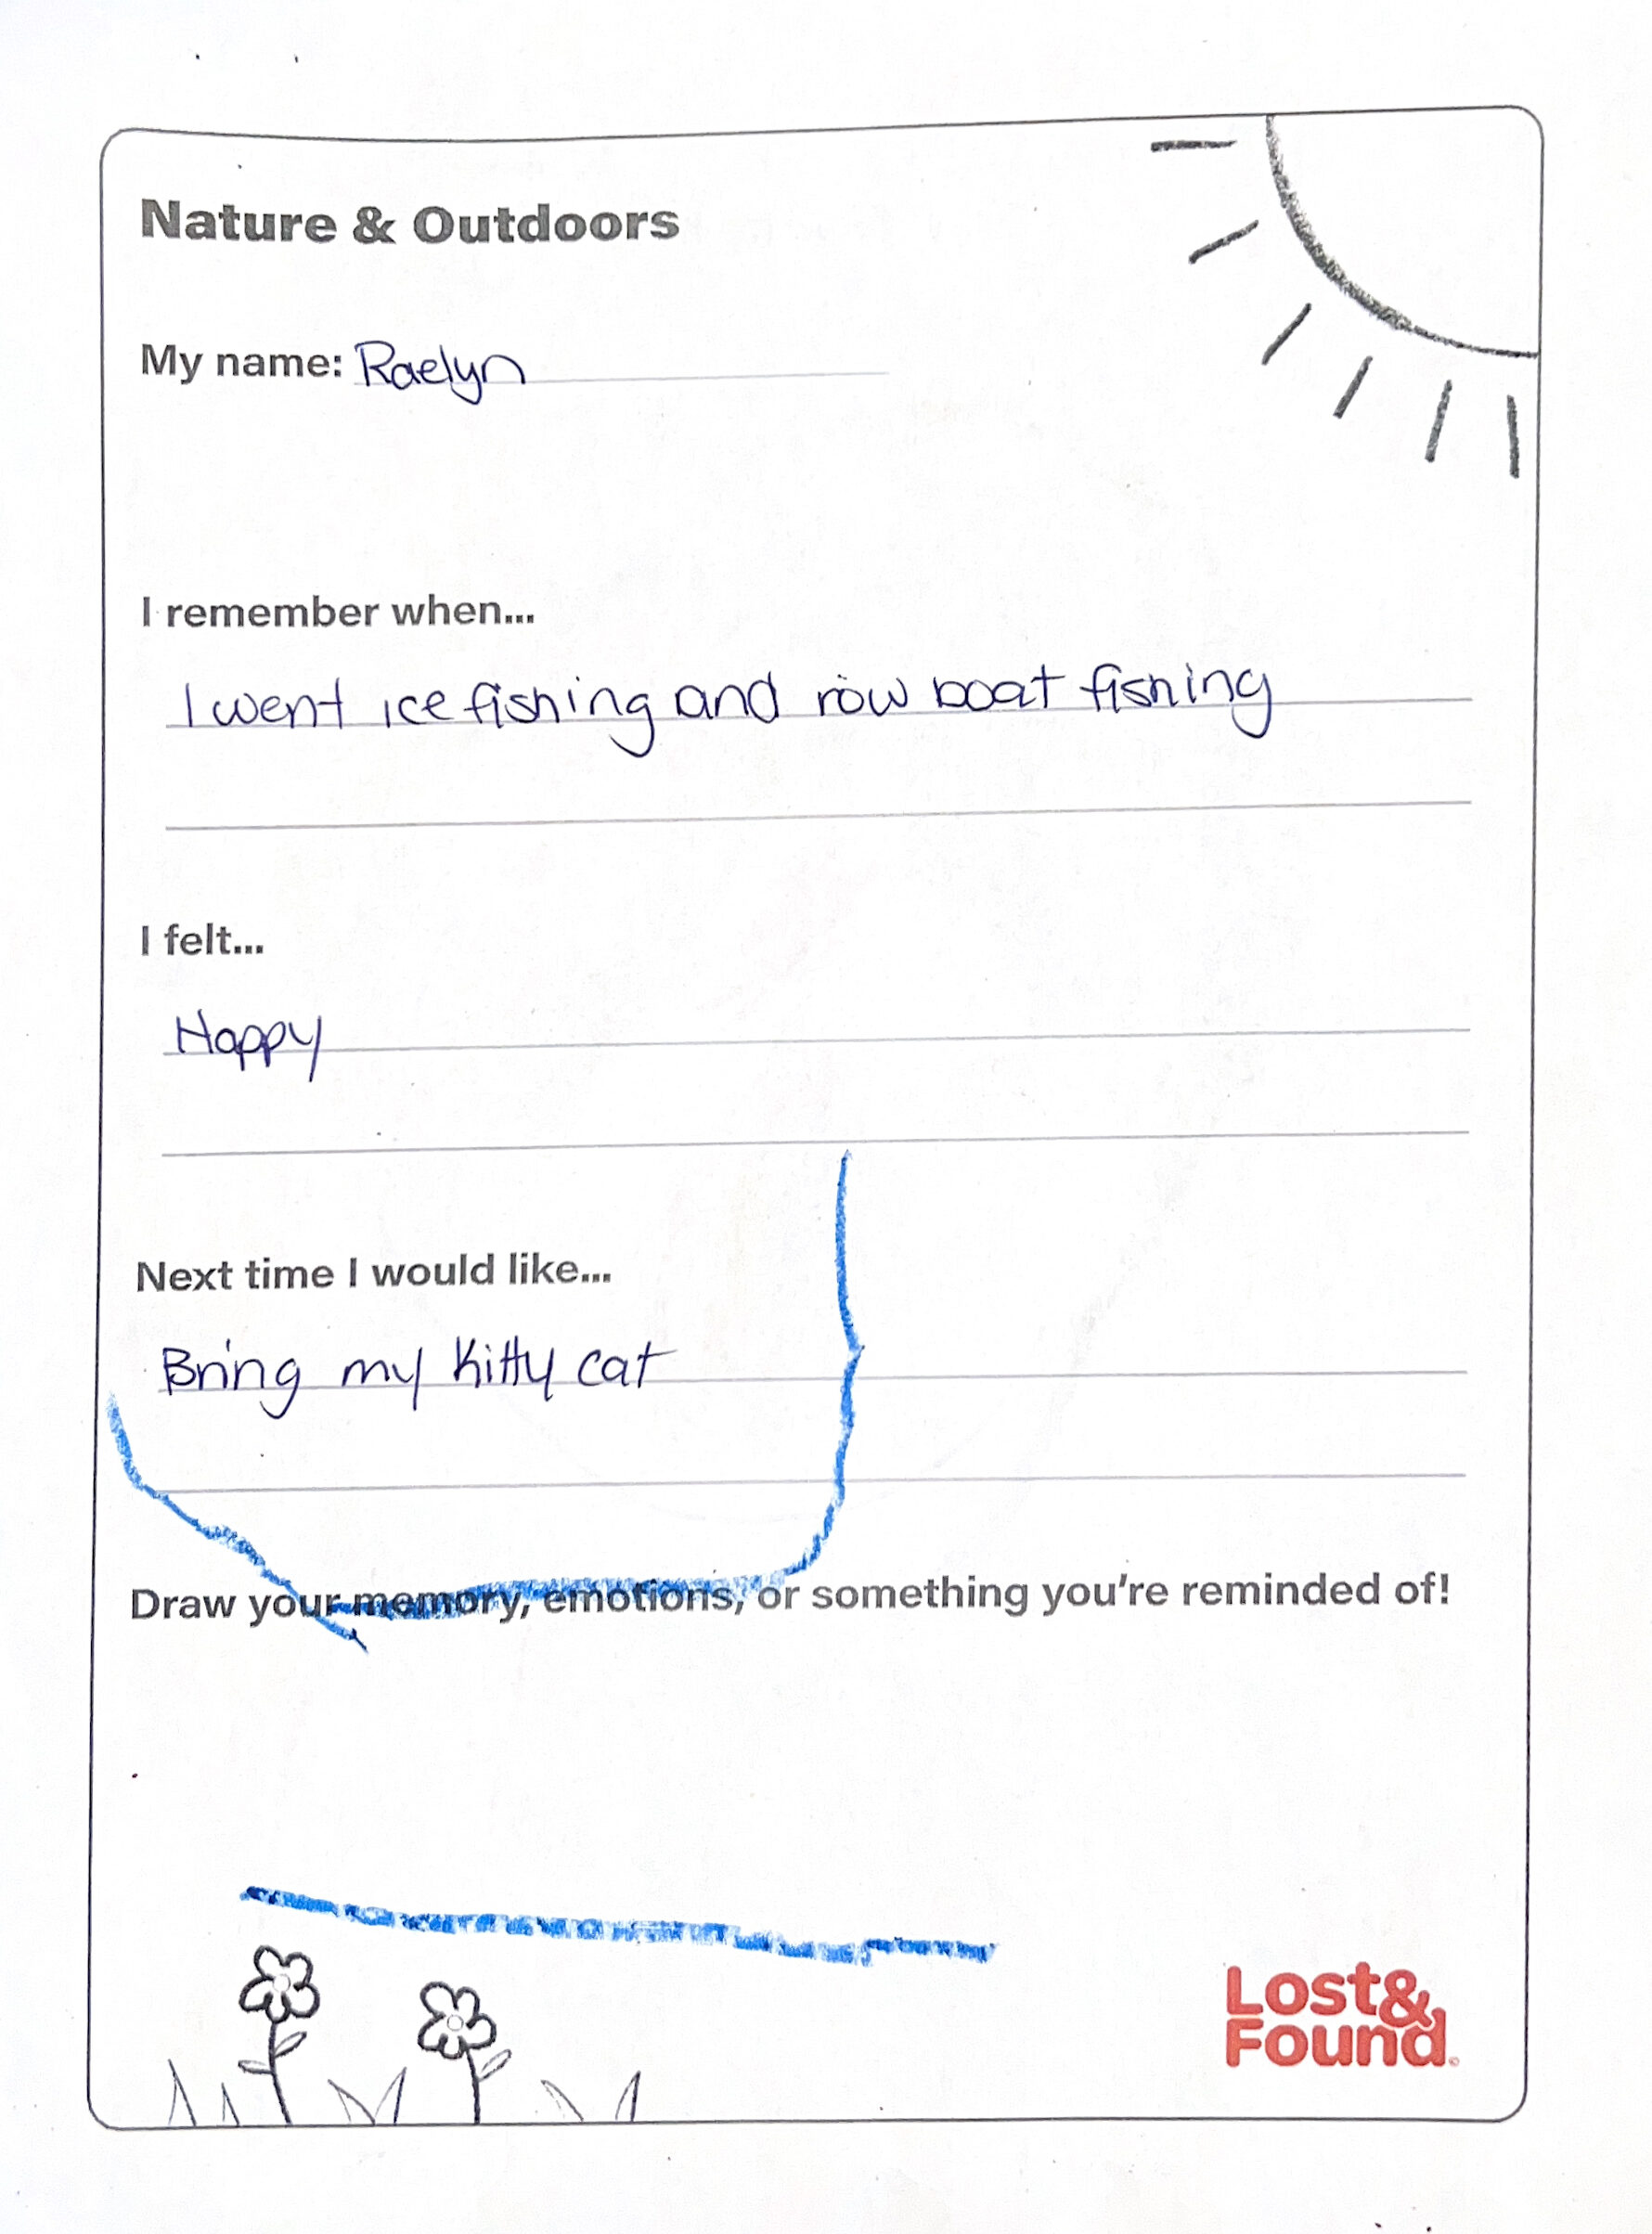 Nature & Outdoors
My name: Raelyn
I remember when...
I went ice fishing and row boat fishing
I felt...
Happy
Next time I would like...
Bring my kitty cat
Draw your memory, emotions, or something you're reminded of!
Lost&
Found